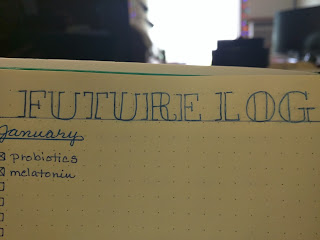 FUTURE LOG
January
probiotics
melatonin